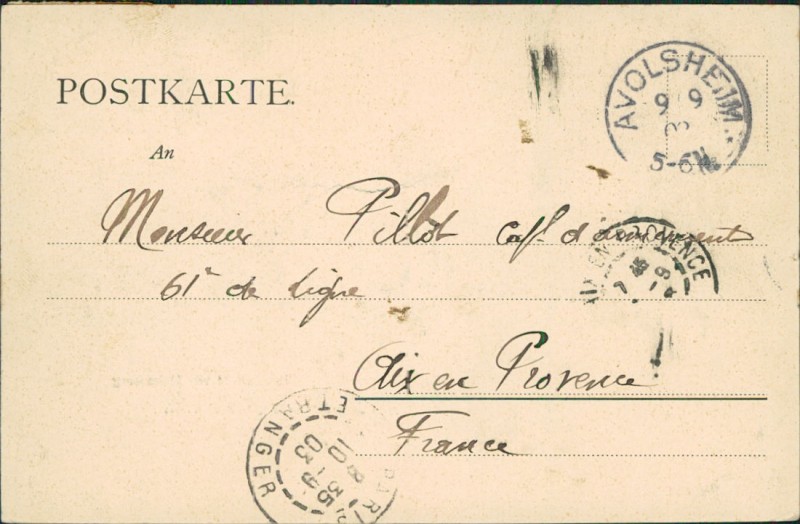 POSTKARTE.
AVOLSHEIM
9 9
5-6N
An
Monsieur Pillot Cap. d'armement
AIX EN PROVENCE
61e de ligne
Aix en Provence
France
PARIS ETRANGER
10
03